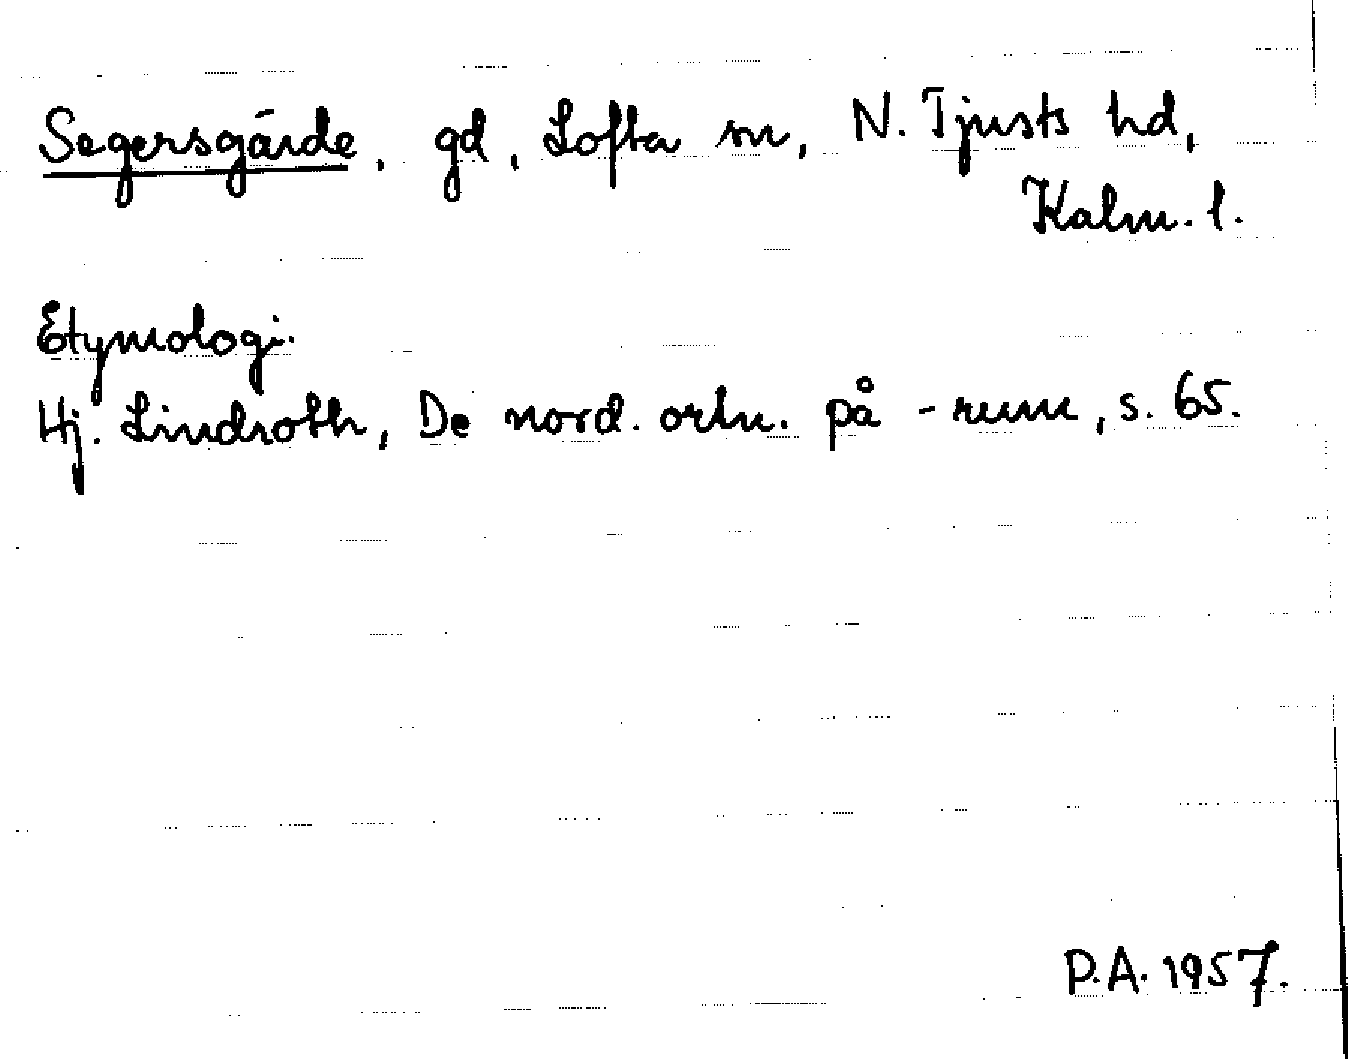 Segersgärde, gd, Lofta sn, N. Tjusts hd,
Kalm. l.
Etymologi.
Hj. Lindroth, De nord. ortn. på -rum, s. 65.
P.A. 1957.